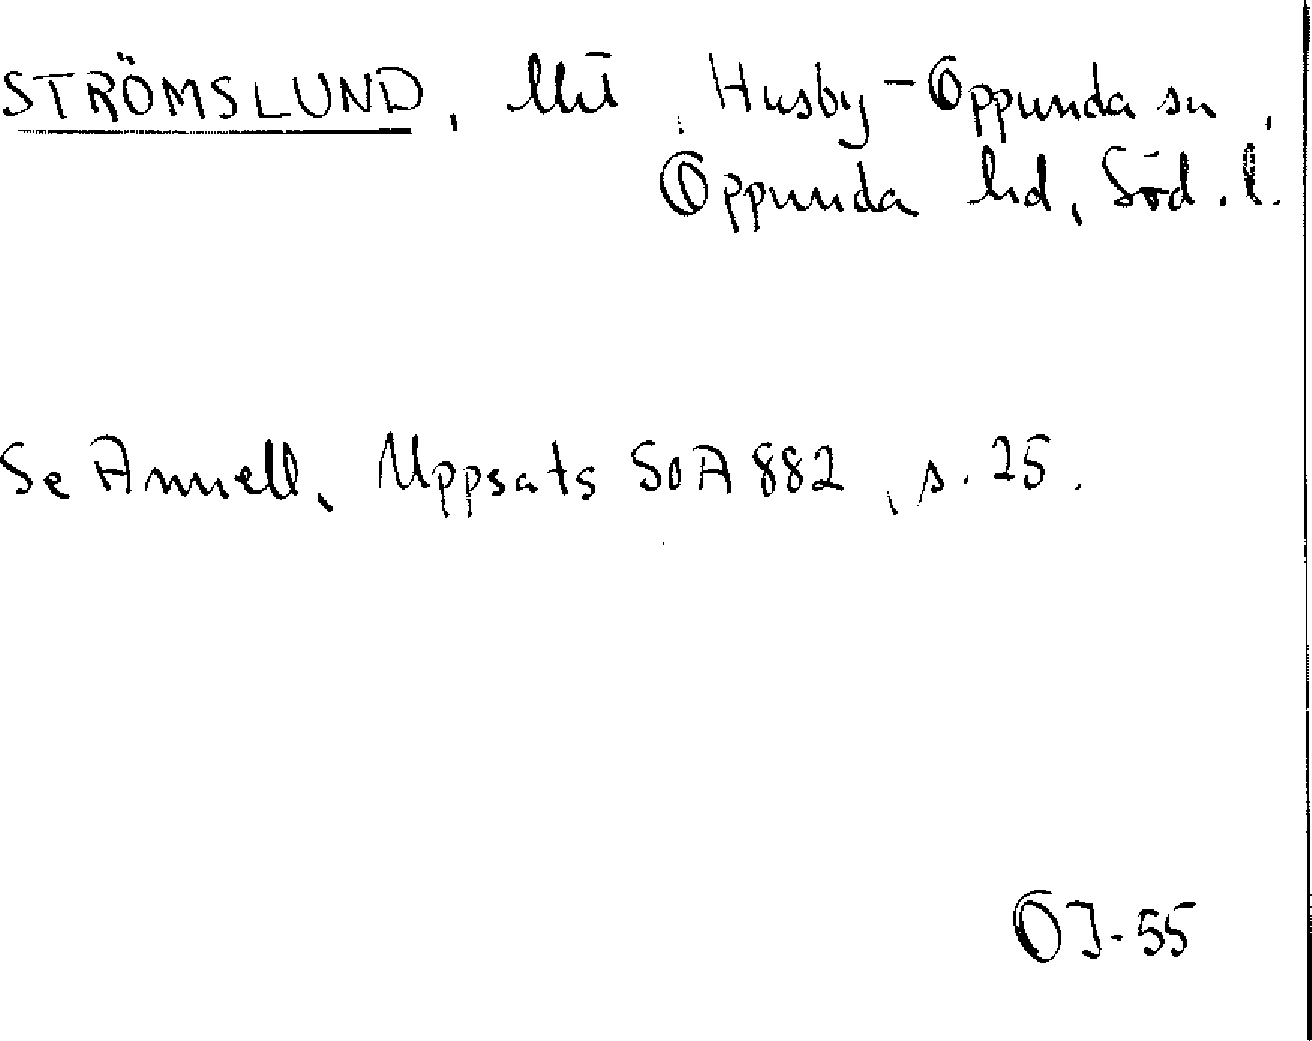 STRÖMSLUND, lht, Husby-Oppunda sn,
Oppunda hd, Söd. l.
Se Annell, Uppsats SOA 882, s. 25.
OJ-55